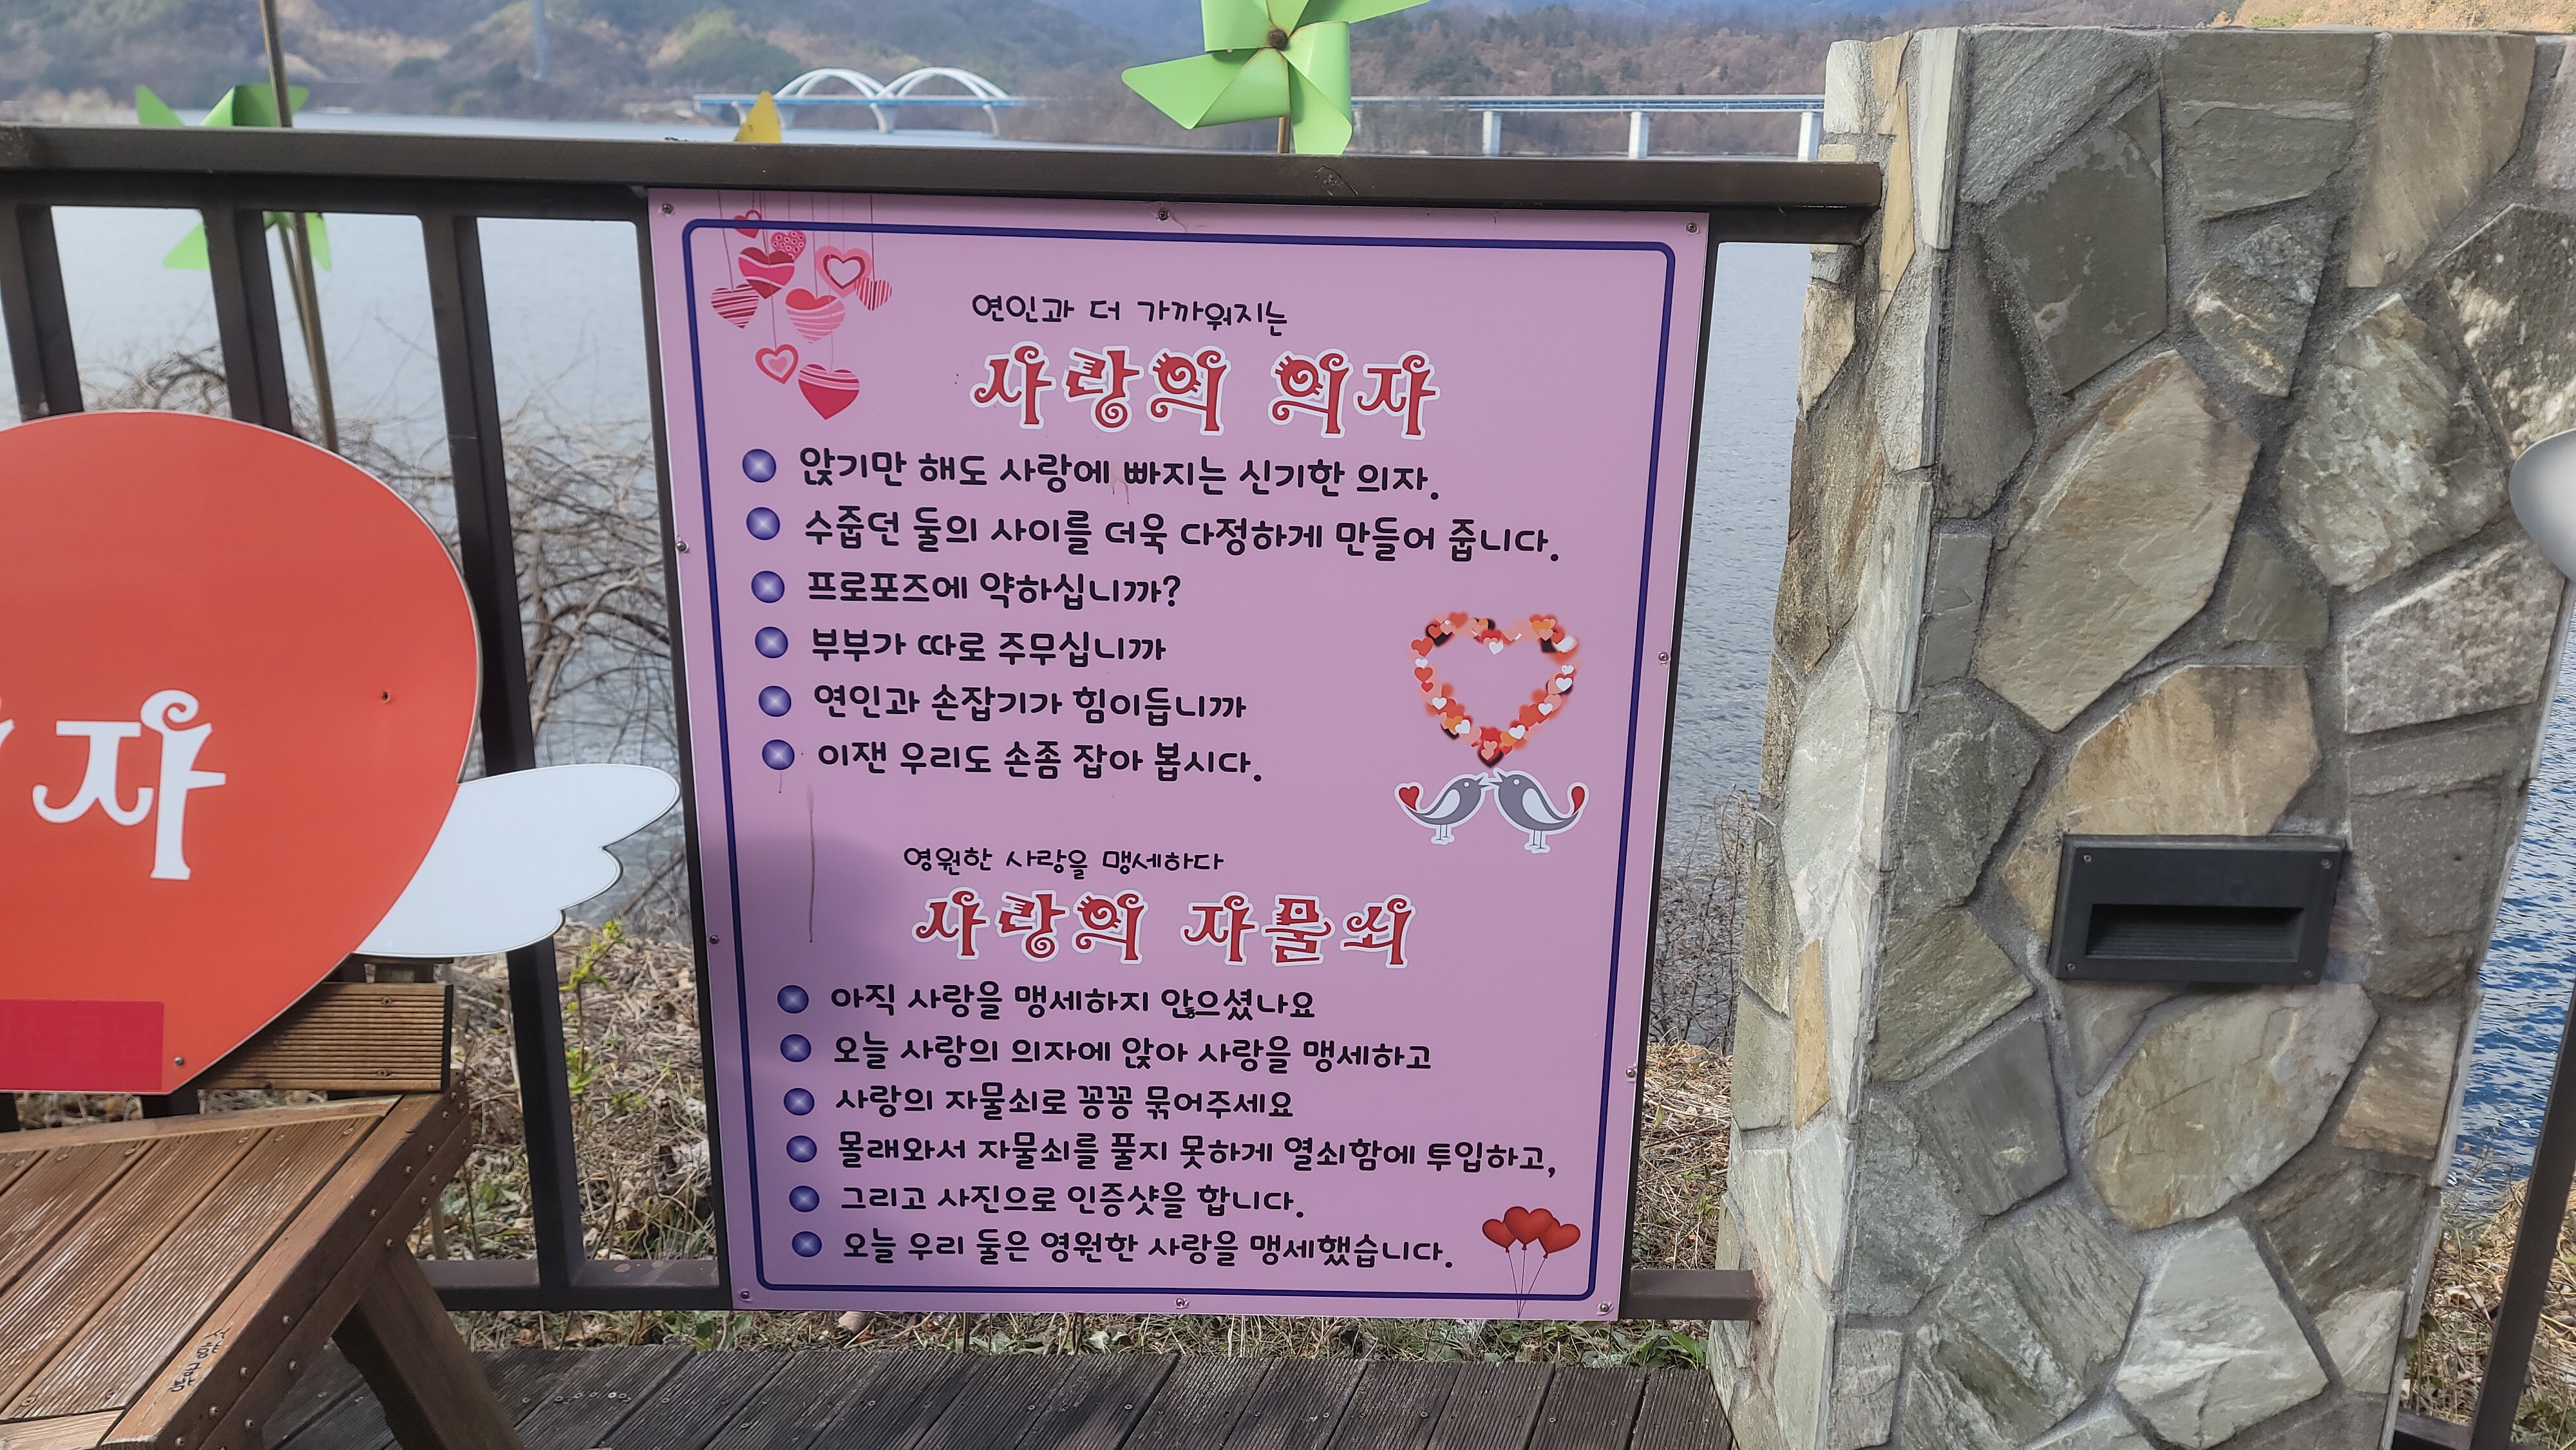 연인과 더 가까워지는
사랑의 의자
앉기만 해도 사랑에 빠지는 신기한 의자.
수줍던 둘의 사이를 더욱 다정하게 만들어 줍니다.
프로포즈에 약하십니까?
부부가 따로 주무십니까
연인과 손잡기가 힘이듭니까
이잰 우리도 손좀 잡아 봅시다.
영원한 사랑을 맹세하다
사랑의 자물쇠
아직 사랑을 맹세하지 않으셨나요
오늘 사랑의 의자에 앉아 사랑을 맹세하고
사랑의 자물쇠로 꽁꽁 묶어주세요
몰래와서 자물쇠를 풀지 못하게 열쇠함에 투입하고,
그리고 사진으로 인증샷을 합니다.
오늘 우리 둘은 영원한 사랑을 맹세했습니다.
자